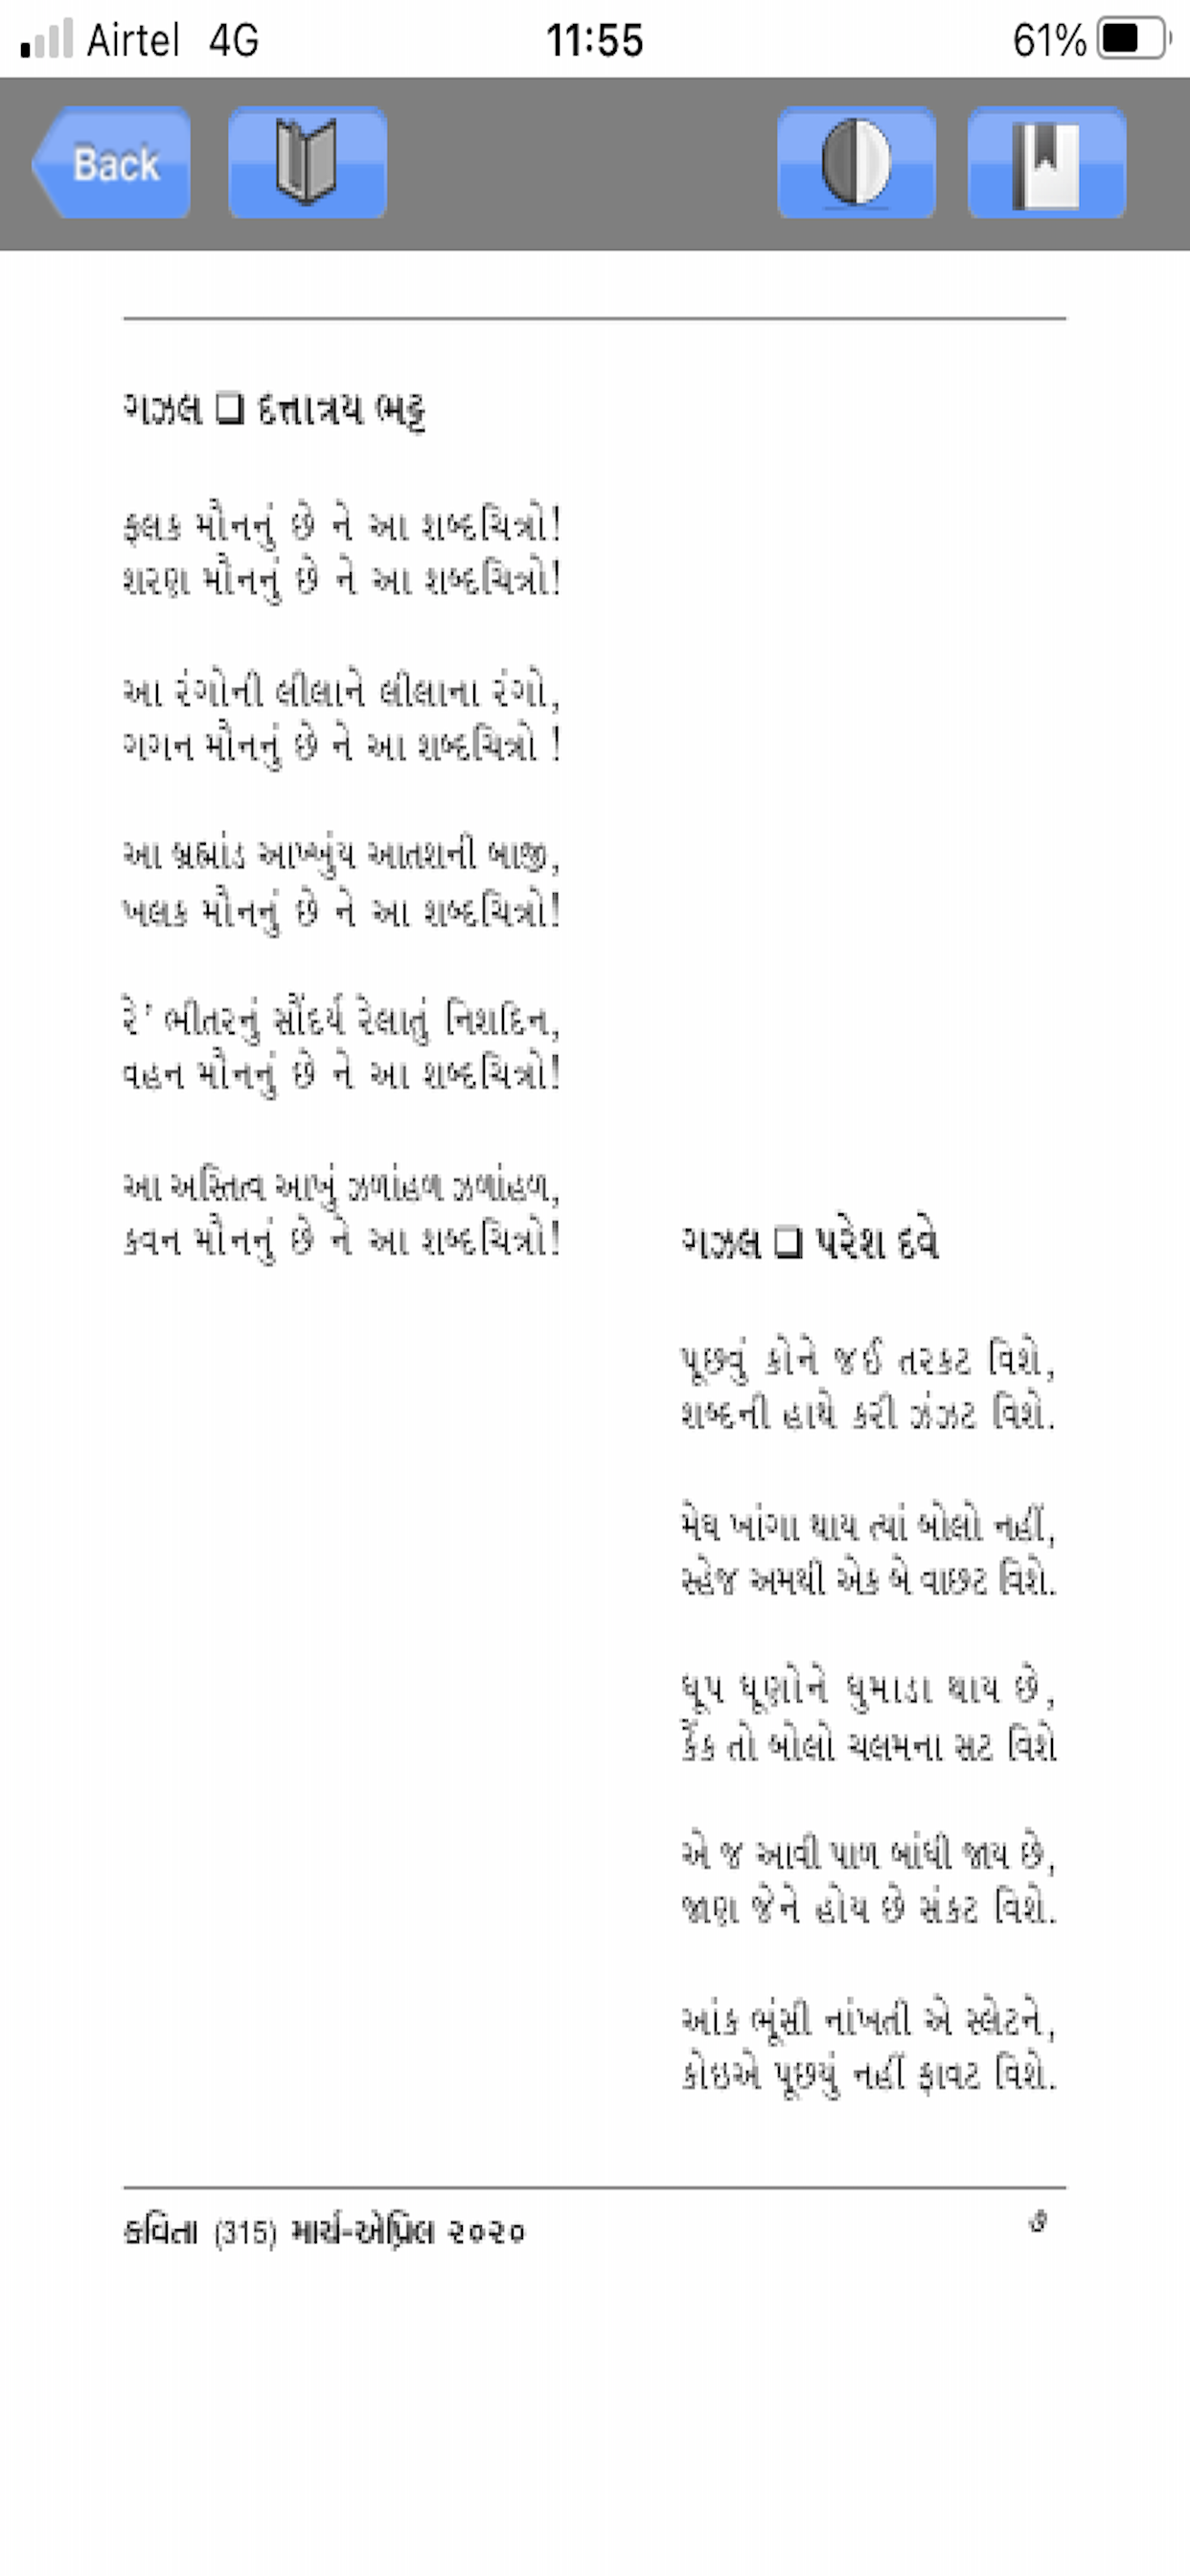 Airtel 4G 11:55 61%
Back
ગઝલ ❑ દત્તાત્રય ભટ્ટ
ફલક મૌનનું છે ને આ શબ્દચિત્રો!
શરણ મૌનનું છે ને આ શબ્દચિત્રો!
આ રંગોની લીલાને લીલાના રંગો,
ગગન મૌનનું છે ને આ શબ્દચિત્રો !
આ બ્રહ્માંડ આખ્ખુંય આતશની બાજી,
ખલક મૌનનું છે ને આ શબ્દચિત્રો!
રે' ભીતરનું સૌંદર્ય રેલાતું નિશદિન,
વહન મૌનનું છે ને આ શબ્દચિત્રો!
આ અસ્તિત્વ આખું ઝળાંહળ ઝળાંહળ,
કવન મૌનનું છે ને આ શબ્દચિત્રો!
ગઝલ ❑ પરેશ દવે
પૂછવું કોને જઈ તરકટ વિશે,
શબ્દની હાથે કરી ઝંઝટ વિશે.
મેઘ ખાંગા થાય ત્યાં બોલો નહીં,
સ્હેજ અમથી એક બે વાછટ વિશે.
ધૂપ ધૂણોને ધુમાડા થાય છે,
કૈંક તો બોલો ચલમના સટ વિશે
એ જ આવી પાળ બાંધી જાય છે,
જાણ જેને હોય છે સંકટ વિશે.
આંક ભૂંસી નાંખતી એ સ્લેટને,
કોઇએ પૂછયું નહીં ફાવટ વિશે.
કવિતા (315) માર્ચ-એપ્રિલ ૨૦૨૦
૭